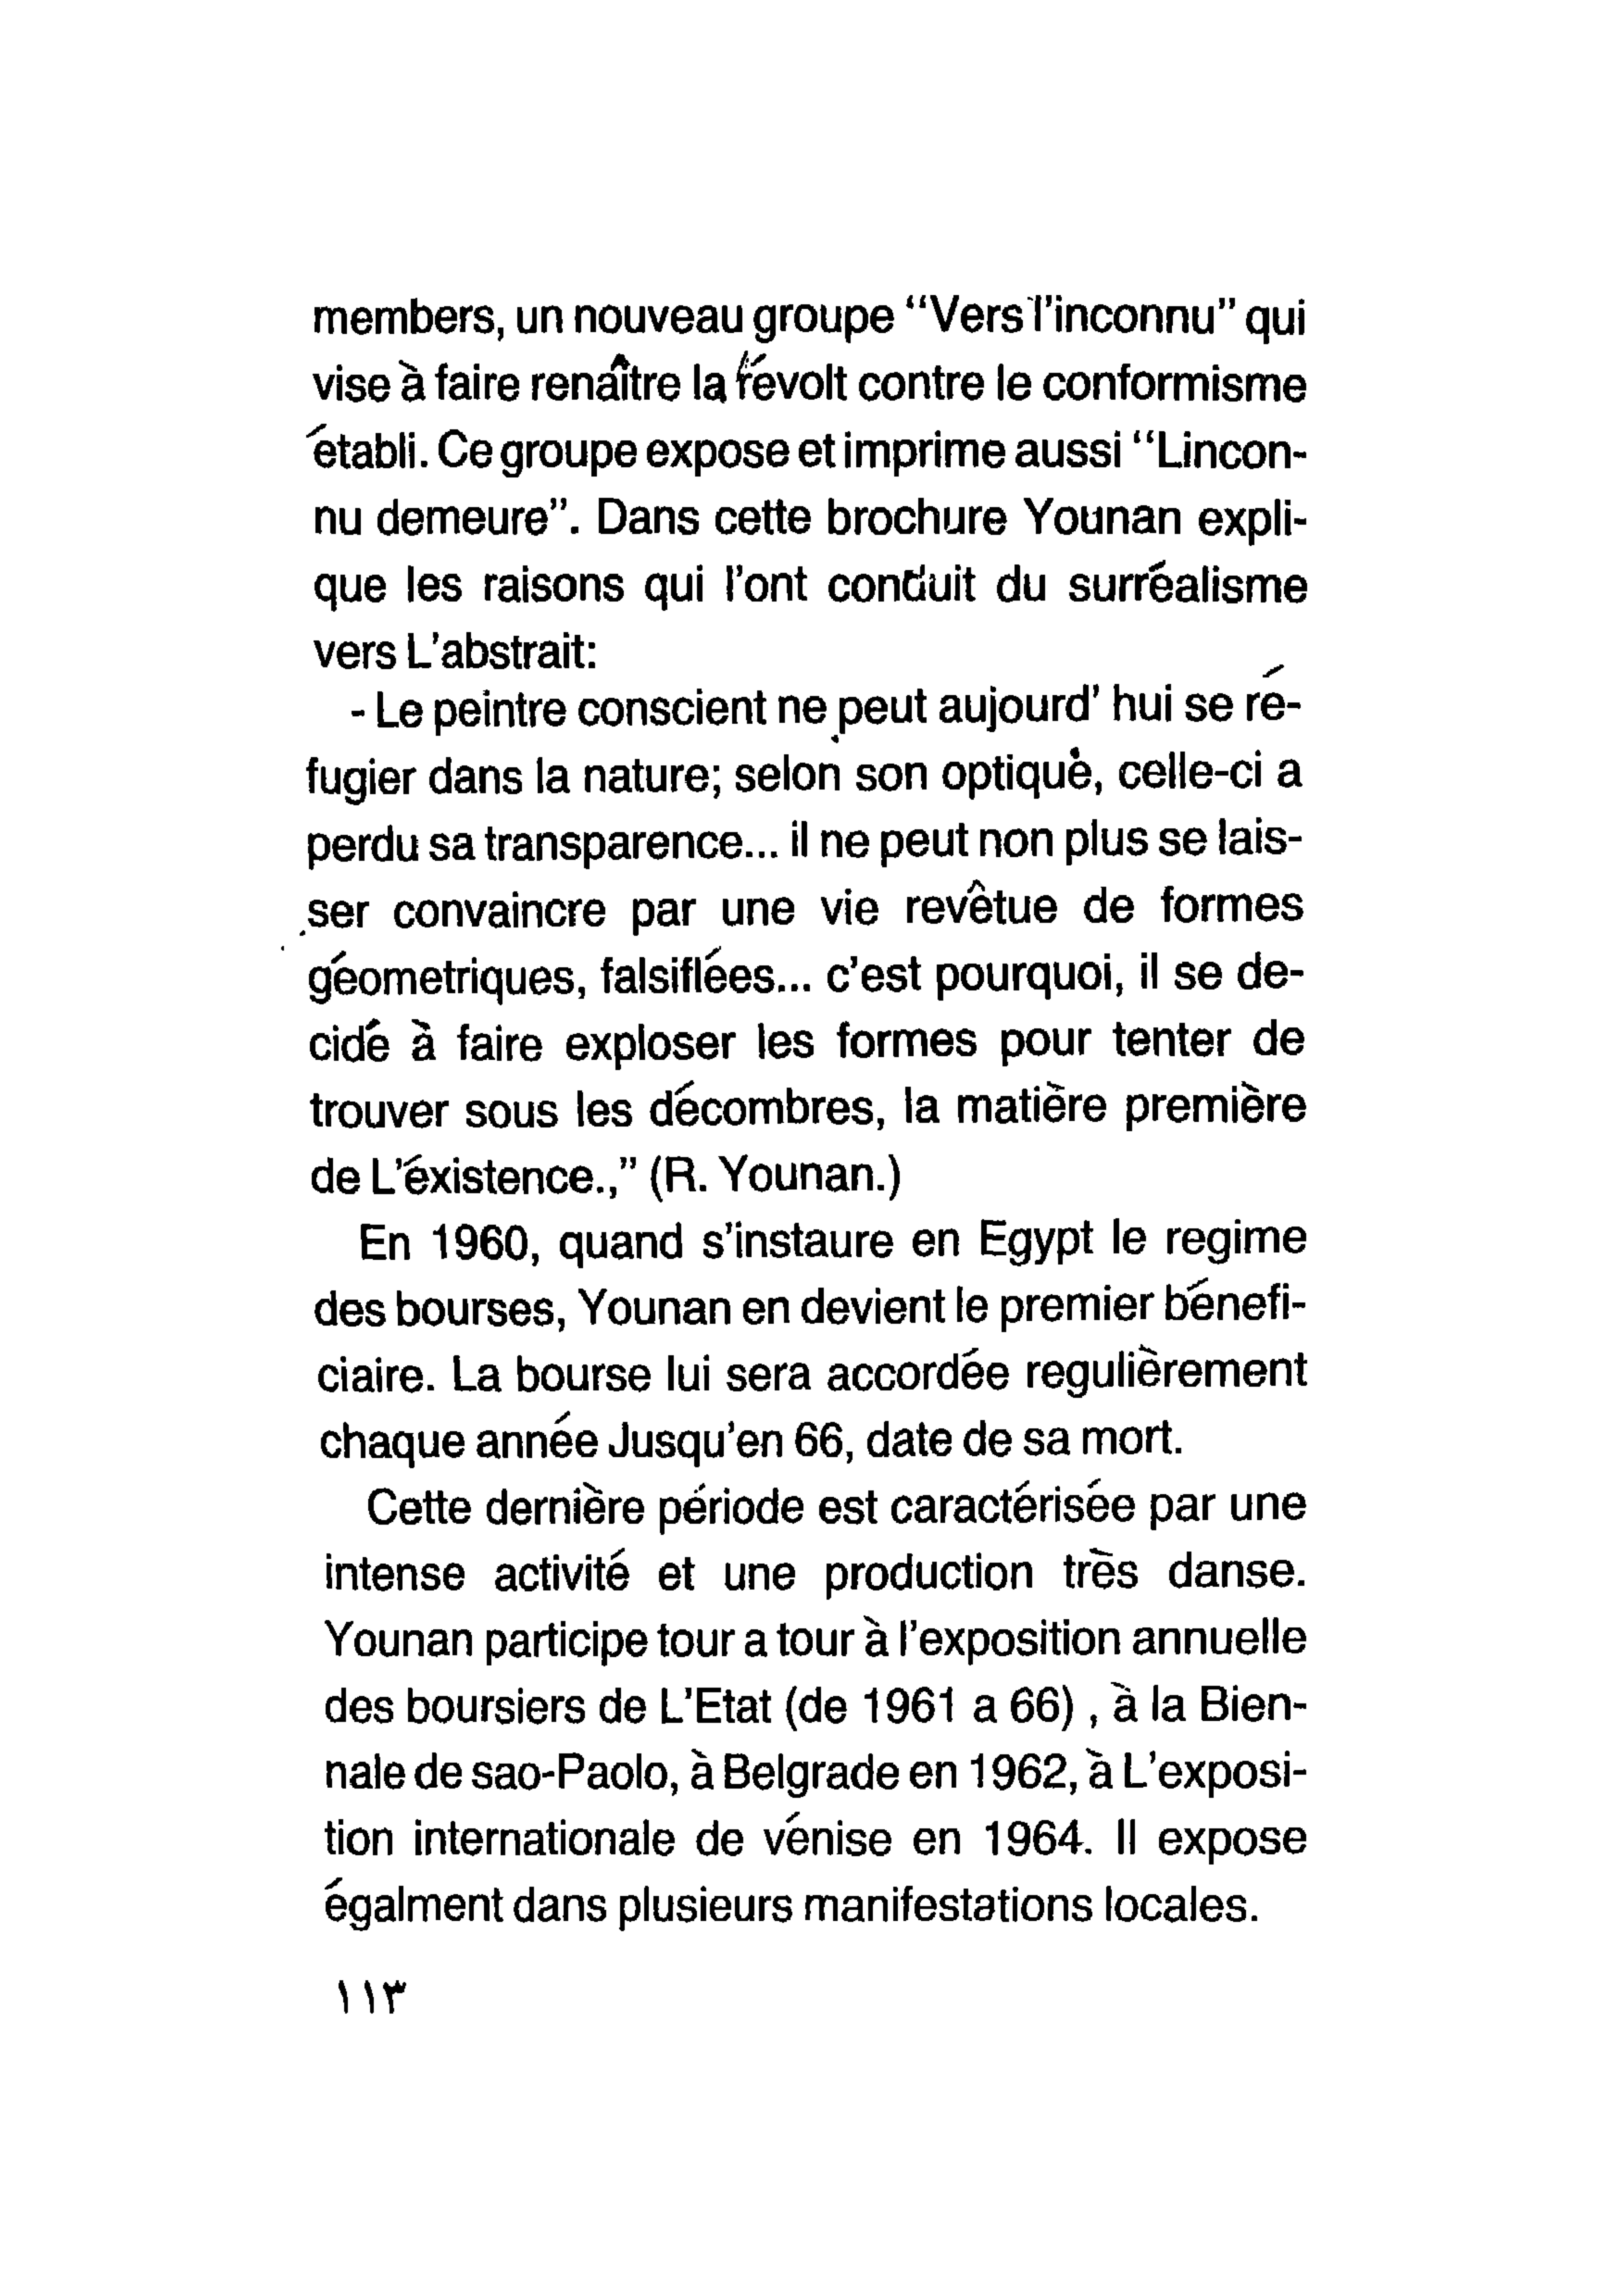 members, un nouveau groupe “Vers l’inconnu” qui
vise à faire renâitre la révolt contre le conformisme
établi. Ce groupe expose et imprime aussi “Lincon-
nu demeure”. Dans cette brochure Younan expli-
que les raisons qui l’ont conduit du surréalisme
vers L’abstrait:
- Le peintre conscient ne peut aujourd’ hui se ré-
fugier dans la nature; selon son optique, celle-ci a
perdu sa transparence... il ne peut non plus se lais-
ser convaincre par une vie revêtue de formes
géometriques, falsiflées... c’est pourquoi, il se de-
cidé à faire exploser les formes pour tenter de
trouver sous les décombres, la matière première
de L’éxistence.,” (R. Younan.)
En 1960, quand s’instaure en Egypt le regime
des bourses, Younan en devient le premier bénefi-
ciaire. La bourse lui sera accordée regulièrement
chaque année Jusqu’en 66, date de sa mort.
Cette dernière période est caractérisée par une
intense activité et une production très danse.
Younan participe tour a tour à l’exposition annuelle
des boursiers de L’Etat (de 1961 a 66) , à la Bien-
nale de sao-Paolo, à Belgrade en 1962, à L’exposi-
tion internationale de vénise en 1964. Il expose
égalment dans plusieurs manifestations locales.
١١٣